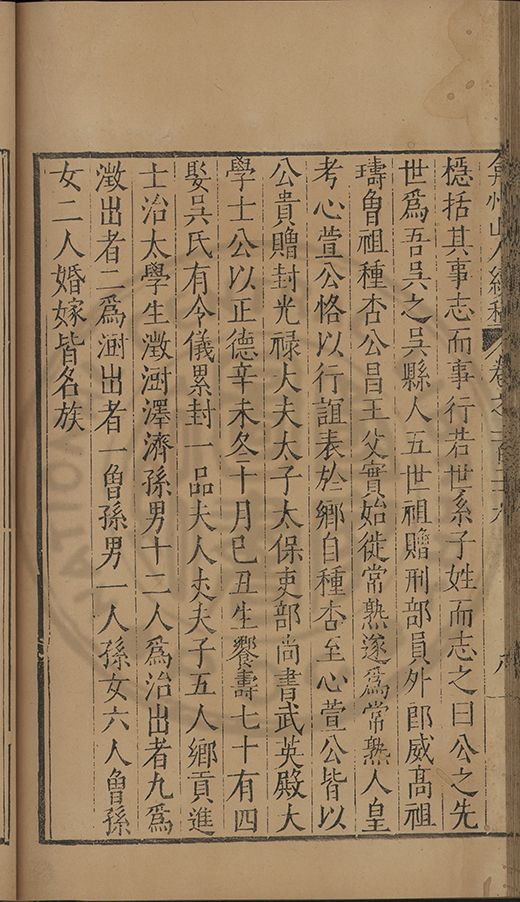 穩括其事志而事行若世系子姓而志之曰公之先
世爲吾吳之吳縣人五世祖贈刑部員外郎威高祖
璹魯祖種杏公昌王父實始徙常熟遂爲常熟人皇
考心萱公恪以行誼表於鄉自種杏至心萱公皆以
公貴贈封光祿大夫太子太保吏部尚書武英殿大
學士公以正德辛未冬十月巳丑生饗壽七十有四
娶吳氏有令儀累封一品夫人丈夫子五人鄉貢進
士治太學生澂澍澤濟孫男十二人爲治出者九爲
澂出者二爲澍出者一魯孫男一人孫女六人魯孫
女二人婚嫁皆名族